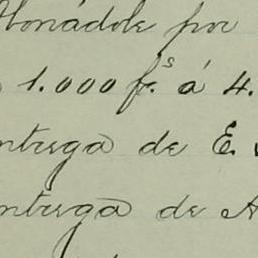 Abonádole por
1.000 f.s á 4.
ntrega de E.
ntrega de A